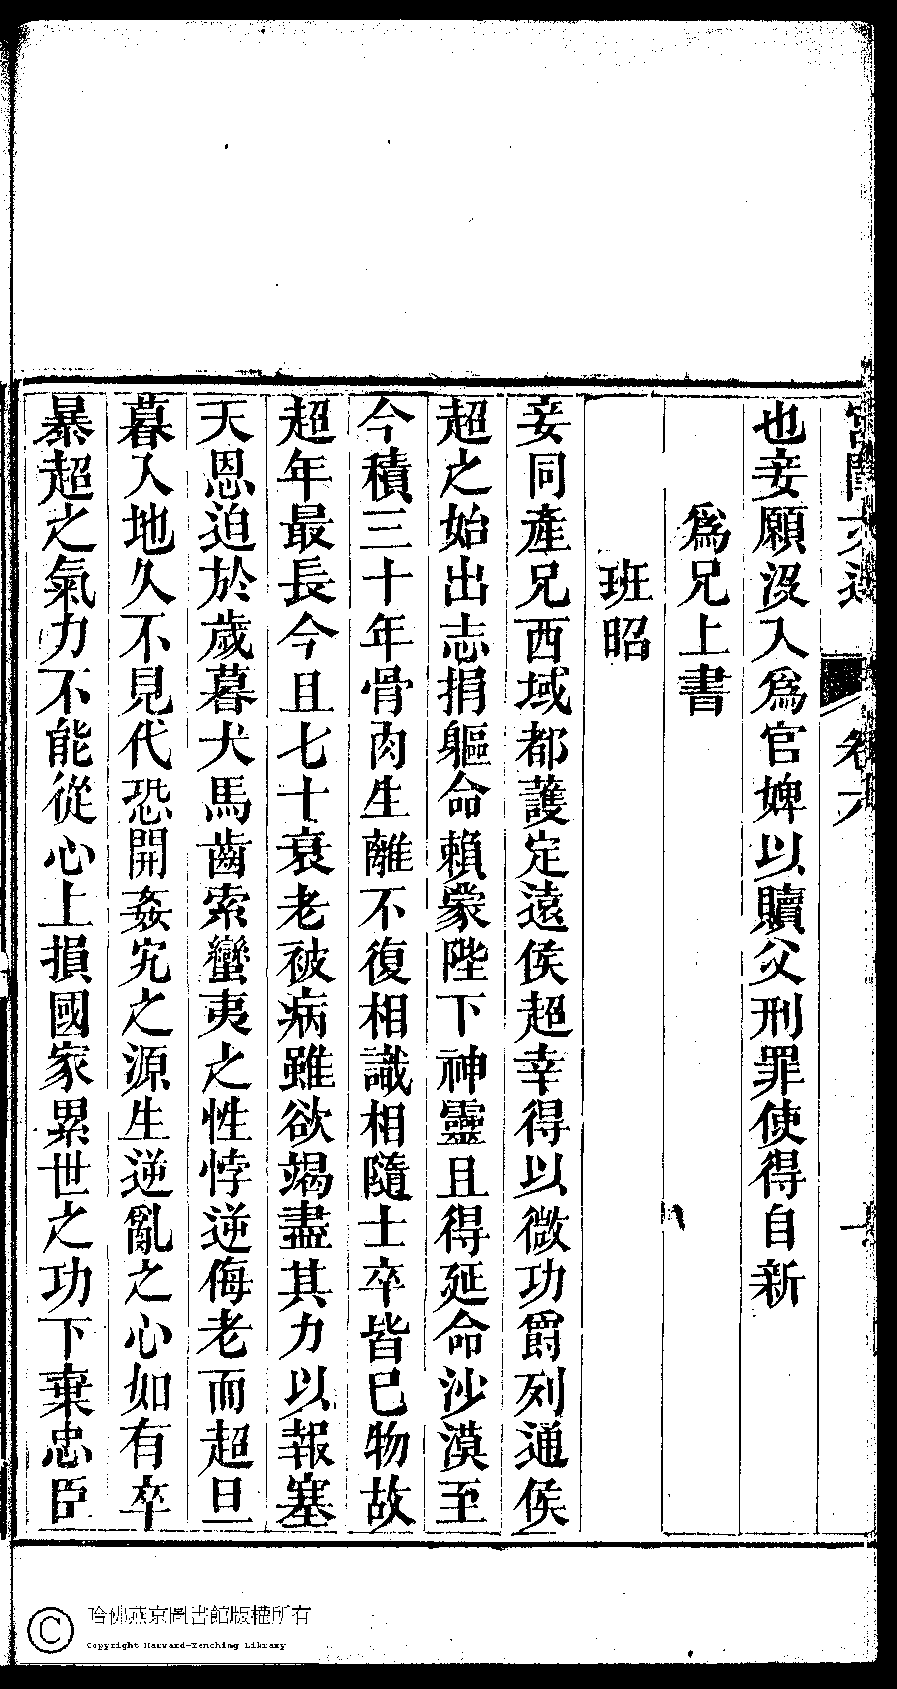 宮閨文選 卷六
也妾願沒入爲官婢以贖父刑罪使得自新
爲兄上書
班昭
妾同產兄西域都護定遠侯超幸得以微功爵列通侯
超之始出志捐軀命賴蒙陛下神靈且得延命沙漠至
今積三十年骨肉生離不復相識相隨士卒皆已物故
超年最長今且七十衰老被病雖欲竭盡其力以報塞
天恩迫於歲暮犬馬齒索蠻夷之性悖逆侮老而超旦
暮入地久不見代恐開姦宄之源生逆亂之心如有卒
暴超之氣力不能從心上損國家累世之功下棄忠臣
哈佛燕京圖書館版權所有
Copyright Harvard-Yenching Library